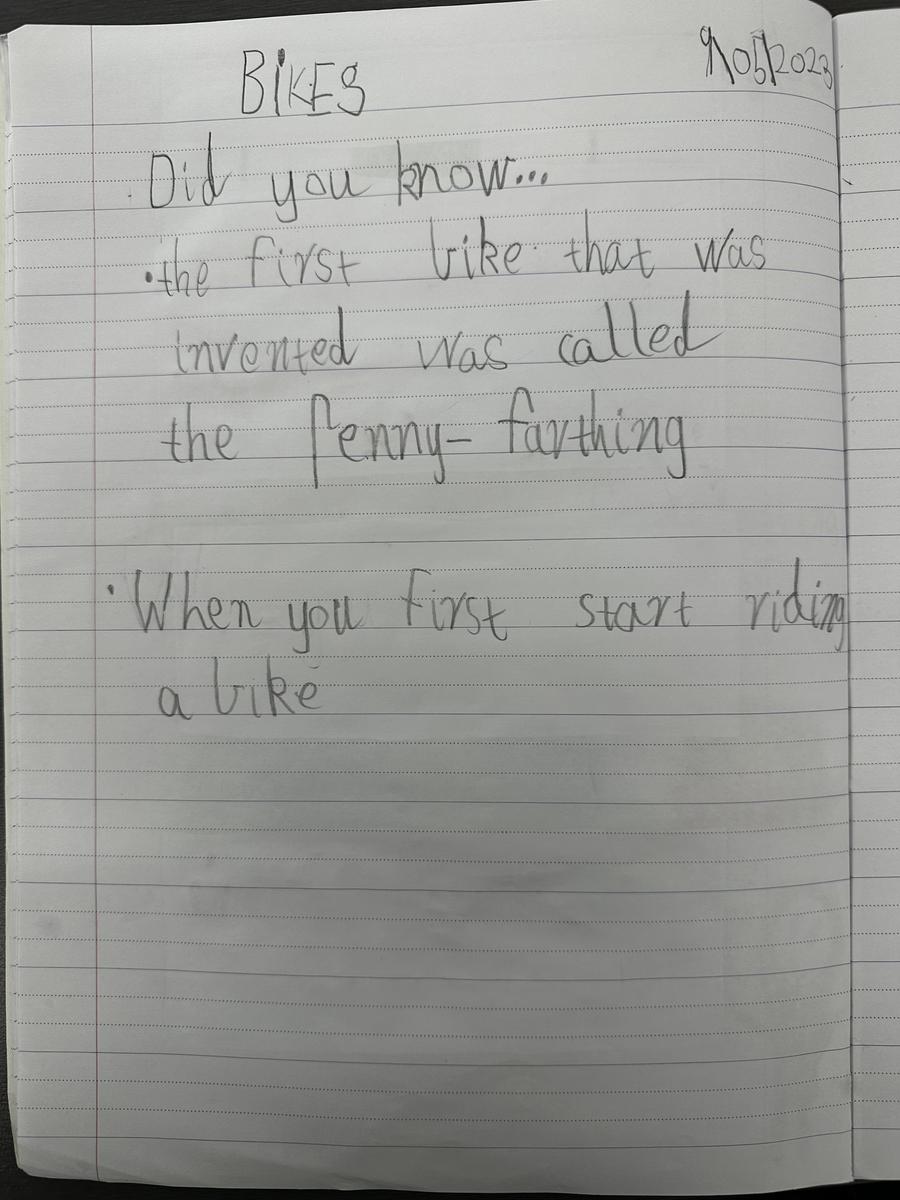 BIKES 9/05/2023
Did you know...
• the first bike that was
invented was called
the Penny-farthing
• When you first start riding
a bike